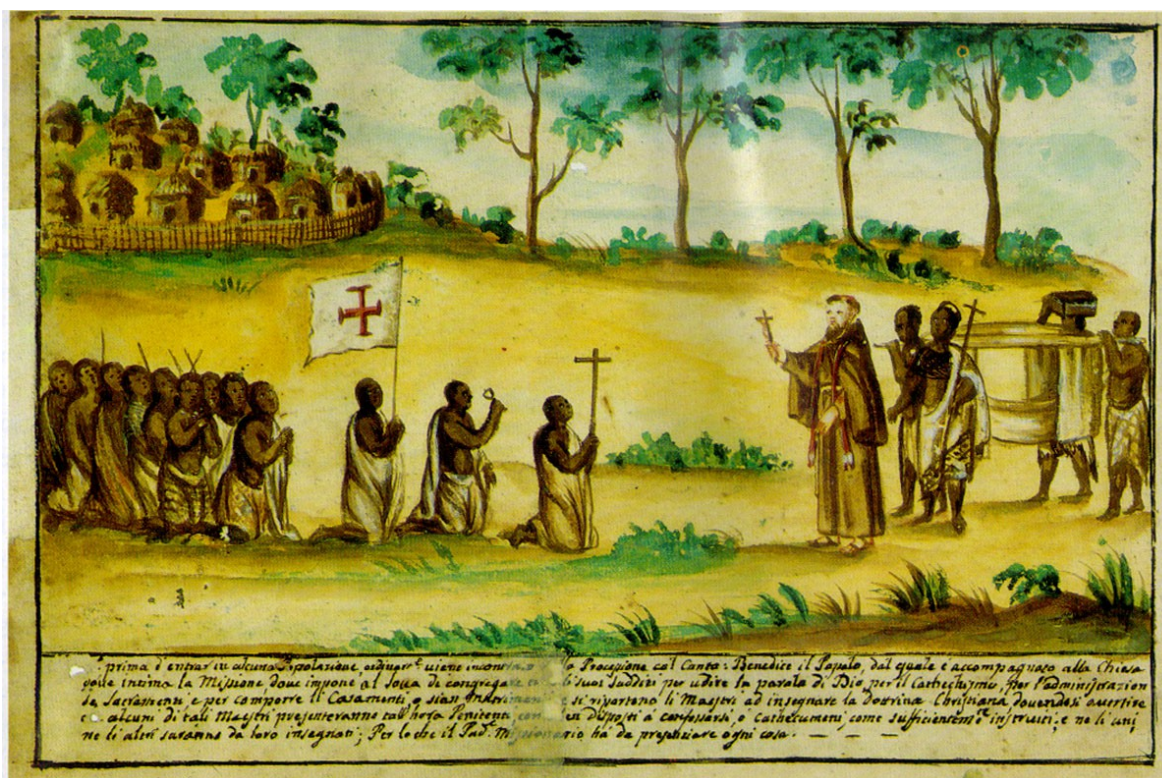 prima d'entrar in alcuna Popolazione ordinar.te viene incontrato Processione col Canto: Benedice il Popolo, dal quale è accompagnato alla Chiesa
intima la Missione dove impone al Sova di congregare suoi sudditi per udire la parola di Dio, per il Cathechismo, per l'administrazion
Sacramenti e per comporre li Casamenti, o sian Matrimon si riportano li Maestri ad insegnare la Dottrina Christiana dovendosi avertire
alcuni di tali Maestri presenteranno tall'hora Penitenti, ben disposti à confessarsi, ò Cathecumeni, come sufficientem.te instrutti, e ne li uni,
ne li altri saranno da loro insegnati; Per lo che il Pad. Missionario hà da presenziare ogni cosa. — — —